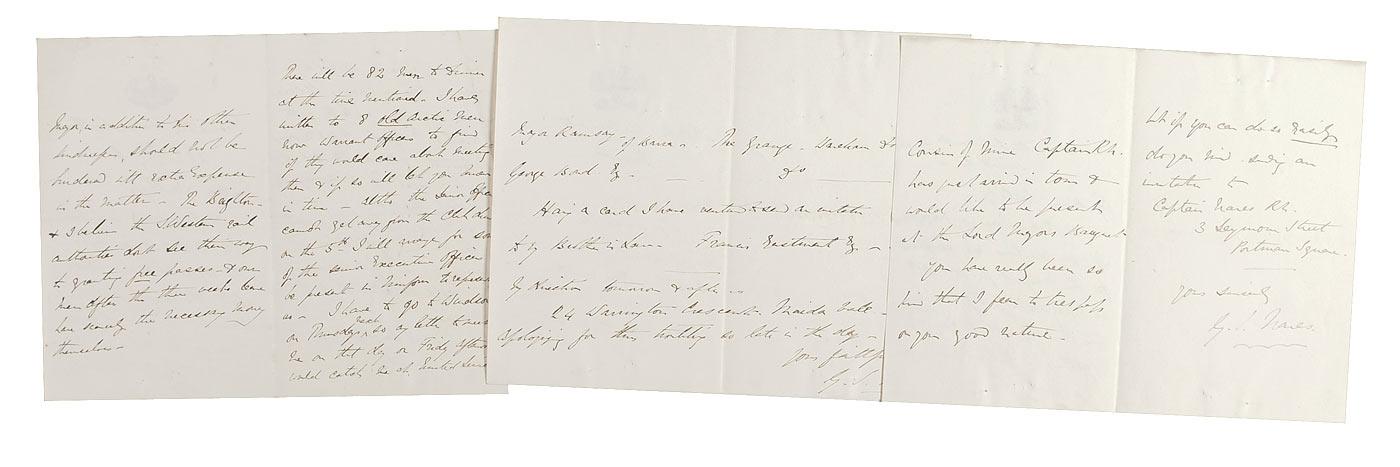 Mayor, in addition to his other
kindnesses, should not be
burdened with extra expense
in the matter - The Brighton -
& I believe the S Western rail
authorities dont see their way
to granting free passes - & our
men after the three weeks leave
have scarcely the necessary money
themselves -
There will be 82 men to dinner
at the time mentioned - I have
written to 8 old Arctic men
now Warrant Officers to find
if they would care about meeting
them & if so will let you know
in time - altho the Senior Officers
cannot get away from the Club
on the 5th I will arrange for some
of the senior Executive Officers
be present in uniform to represent
us - I have to go to Windsor
on Thursday, so any letter to meet
me on that day or Friday afternoon
would catch me at United Service
Major Ramsay - of - The Grange - Wareham
George Bond Esq - do
Having a card I have ventured to send an invitation
to my Brother in Law - Francis Eastment Esq -
My direction tomorrow & after is
24 Warrington Crescent Maida Vale -
Apologizing for this trouble so late in the day -
Yours faithf
G. S.
Cousin of mine Captain RN.
has just arrived in town &
would like to be present
at the Lord Mayors Banquet
You have really been so
kind that I fear to trespass
on your good nature -
but if you can do so easily
do you mind sending an
invitation to
Captain Nares RN.
3 Seymour Street
Portman Square.
Yours sincerely
G. S. Nares